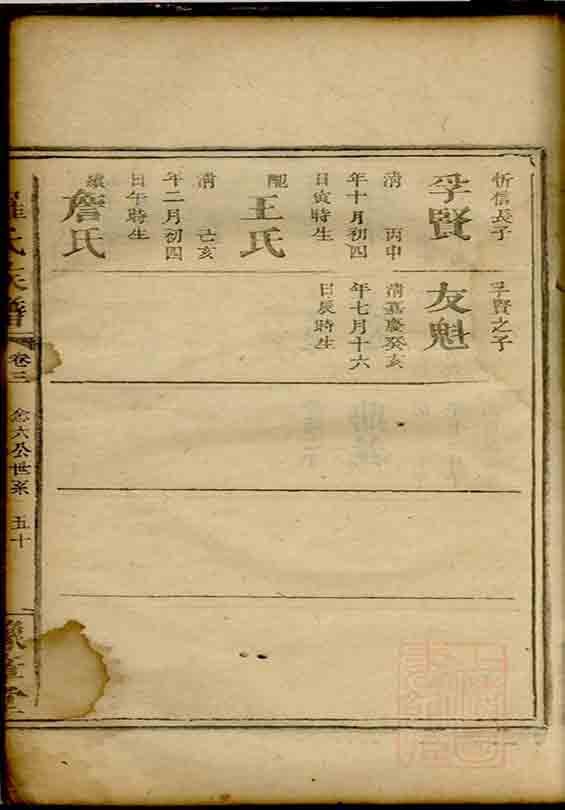 忻信長子
孚賢
清　丙申
年十月初四
日寅時生
配
王氏
清　己亥
年二月初四
日午時生
續
詹氏
孚賢之子
友魁
清嘉慶癸亥
年七月十六
日辰時生
羅氏族譜
卷三
念六公世系
五十
豫章堂